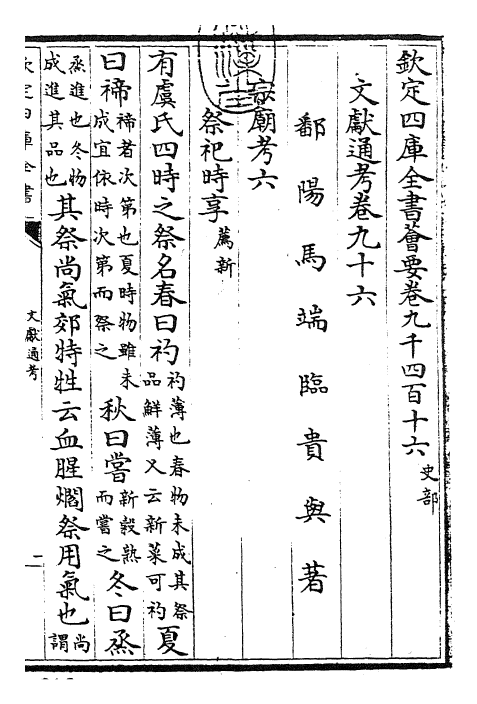 欽定四庫全書薈要卷九千四百十六 史部
文獻通考卷九十六
鄱陽馬端臨貴與著
宗廟考六
祭祀時享 薦新
有虞氏四時之祭名春曰礿 礿薄也春物未成其祭品鮮薄又云新菜可礿 夏
曰禘 禘者次第也夏時物雖未成宜依時次第而祭之 秋曰嘗 新穀熟而嘗之 冬曰烝
烝進也冬物成進其品也 其祭尚氣郊特牲云血腥爓祭用氣也 尚謂
欽定四庫全書
文獻通考
二